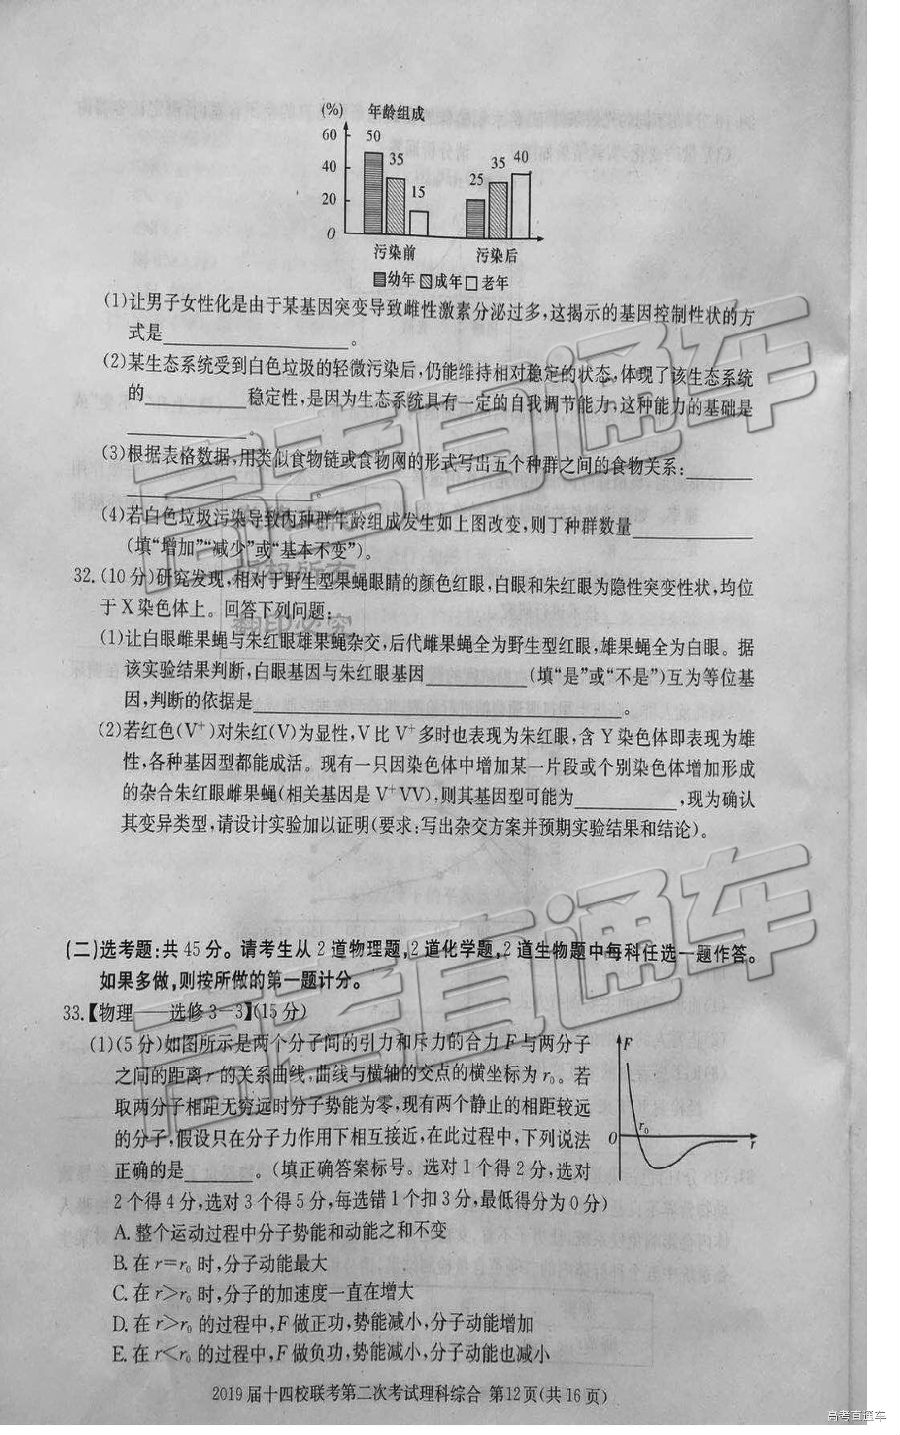 (%) 年龄组成
60
40
20
0
50
35
15
25
35
40
污染前 污染后
幼年 成年 老年
(1)让男子女性化是由于某基因突变导致雌性激素分泌过多,这揭示的基因控制性状的方
式是____________。
(2)某生态系统受到白色垃圾的轻微污染后,仍能维持相对稳定的状态,体现了该生态系统
的________稳定性,是因为生态系统具有一定的自我调节能力,这种能力的基础是
________。
(3)根据表格数据,用类似食物链或食物网的形式写出五个种群之间的食物关系:____
____________。
(4)若白色垃圾污染导致丙种群年龄组成发生如上图改变,则丁种群数量________
(填“增加”“减少”或“基本不变”)。
32.(10分)研究发现,相对于野生型果蝇眼睛的颜色红眼,白眼和朱红眼为隐性突变性状,均位
于X染色体上。回答下列问题:
(1)让白眼雌果蝇与朱红眼雄果蝇杂交,后代雌果蝇全为野生型红眼,雄果蝇全为白眼。据
该实验结果判断,白眼基因与朱红眼基因________(填“是”或“不是”)互为等位基
因,判断的依据是________________________。
(2)若红色(V⁺)对朱红(V)为显性,V比V⁺多时也表现为朱红眼,含Y染色体即表现为雄
性,各种基因型都能成活。现有一只因染色体中增加某一片段或个别染色体增加形成
的杂合朱红眼雌果蝇(相关基因是V⁺VV),则其基因型可能为________,现为确认
其变异类型,请设计实验加以证明(要求:写出杂交方案并预期实验结果和结论)。
(二)选考题:共45分。请考生从2道物理题,2道化学题,2道生物题中每科任选一题作答。
如果多做,则按所做的第一题计分。
33.【物理——选修3-3】(15分)
(1)(5分)如图所示是两个分子间的引力和斥力的合力F与两分子
之间的距离r的关系曲线,曲线与横轴的交点的横坐标为r₀。若
取两分子相距无穷远时分子势能为零,现有两个静止的相距较远
的分子,假设只在分子力作用下相互接近,在此过程中,下列说法
正确的是______。(填正确答案标号。选对1个得2分,选对
2个得4分,选对3个得5分,每选错1个扣3分,最低得分为0分)
F
r₀
O
r
A.整个运动过程中分子势能和动能之和不变
B.在r=r₀时,分子动能最大
C.在r>r₀时,分子的加速度一直在增大
D.在r>r₀的过程中,F做正功,势能减小,分子动能增加
E.在r<r₀的过程中,F做负功,势能减小,分子动能也减小
2019届十四校联考第二次考试理科综合 第12页(共16页)
高考直通车
高考直通车
版权所有
翻印必究
高考直通车